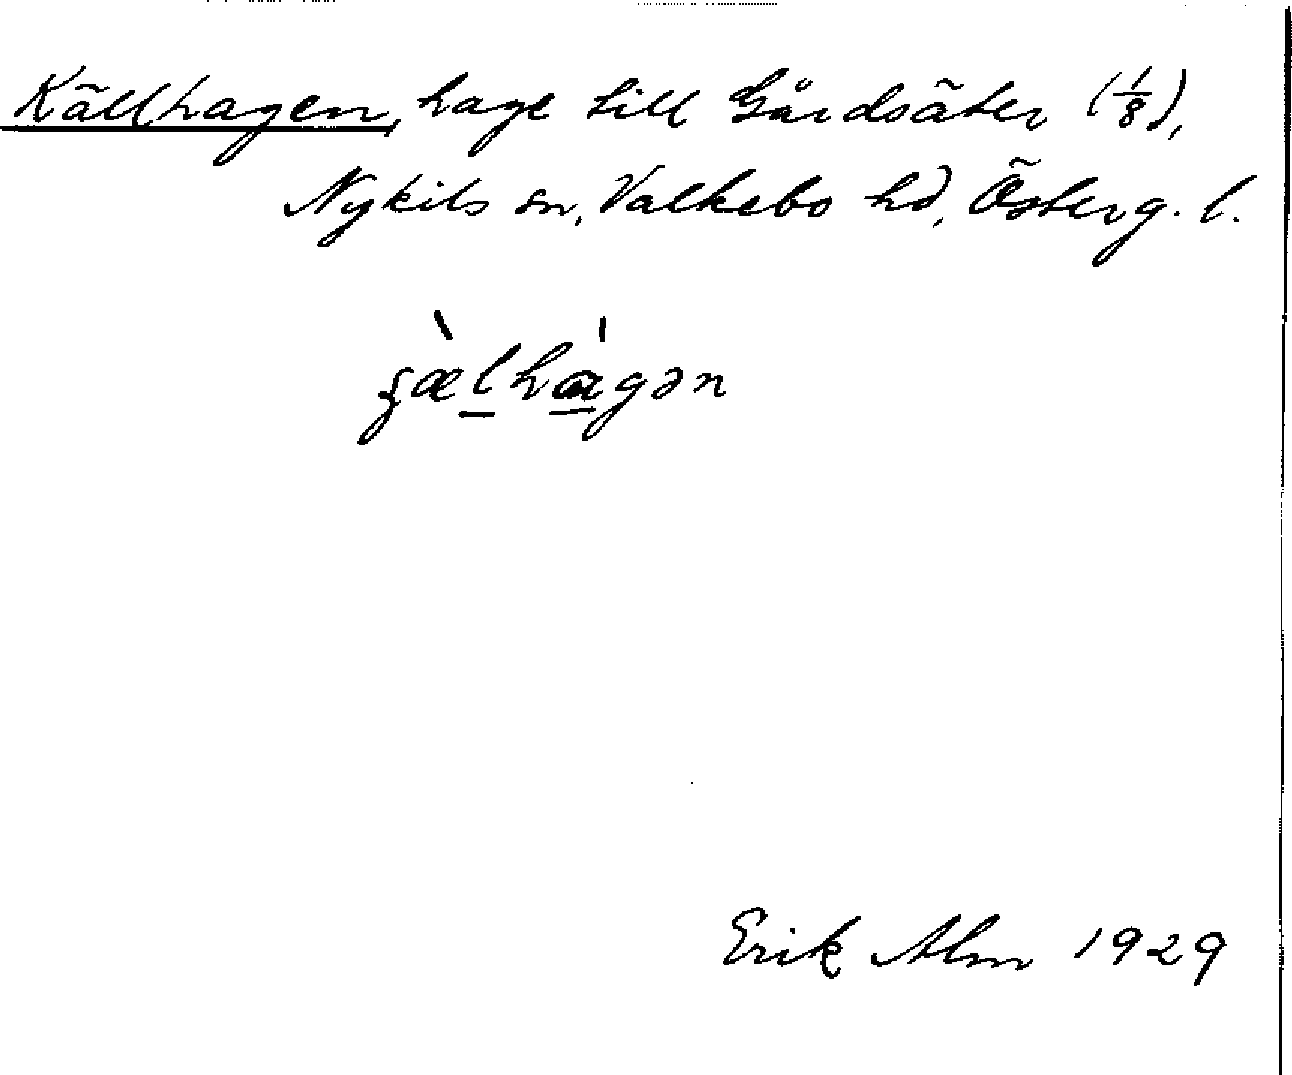 Källhagen, hage till Gårdsäter (1/8),
Nykils sn, Valkebo hd, Österg. l.
Erik Alm 1929